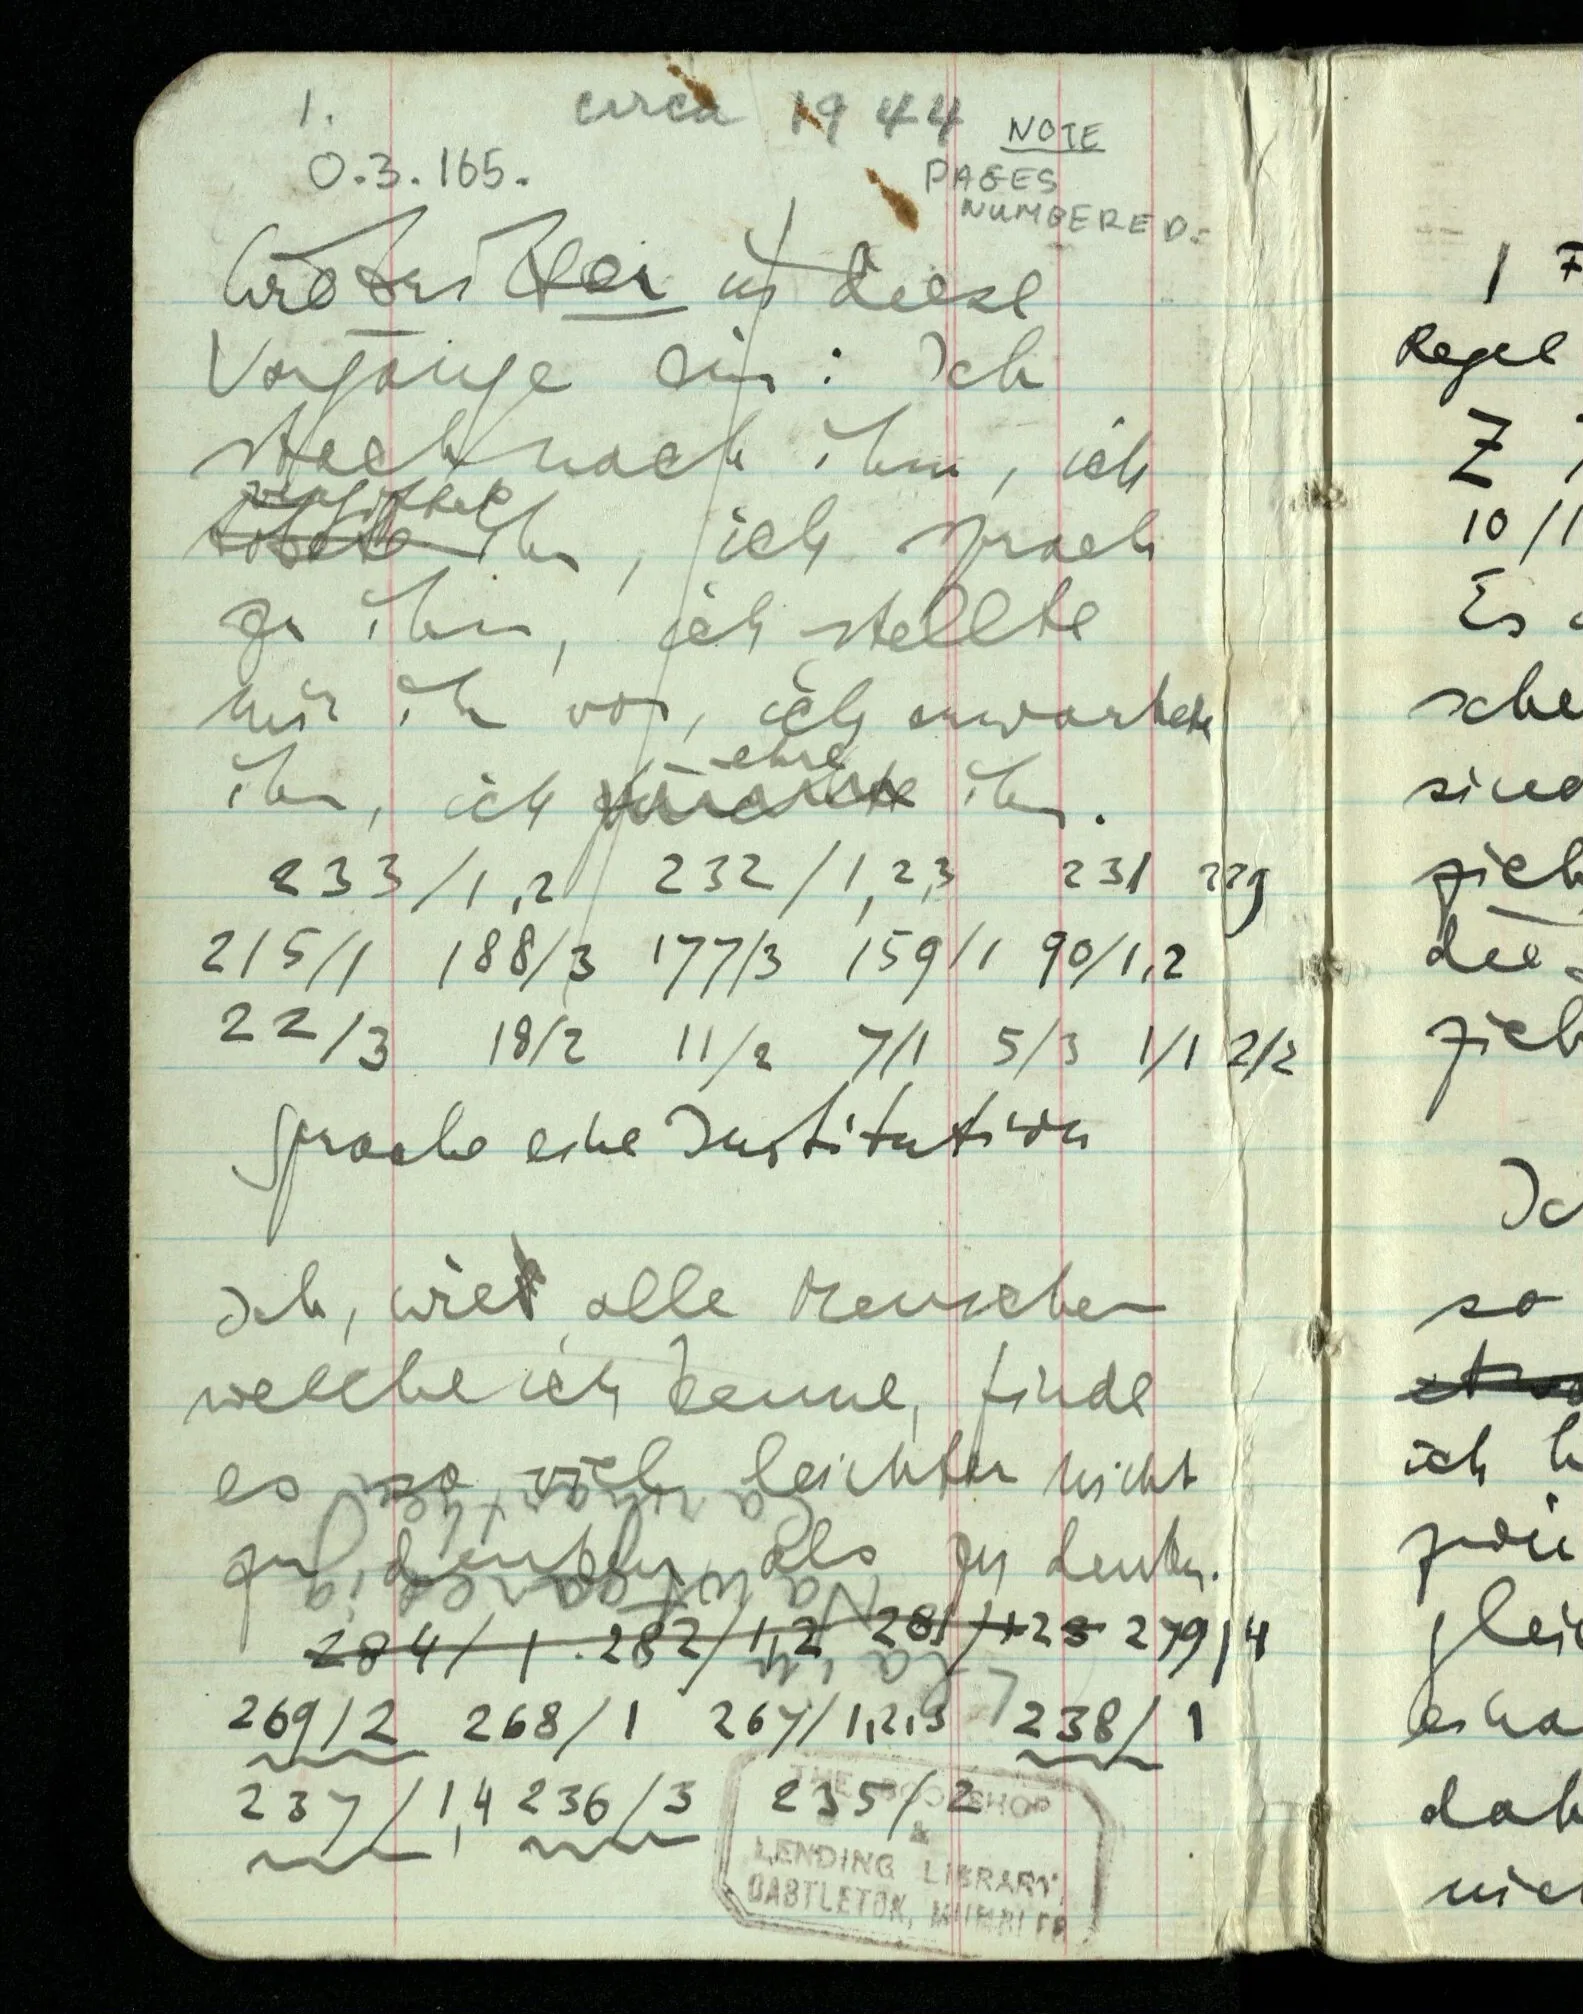 1. circa 1944
NOTE
O.3.165.
PAGES
NUMBERED.
Wie tritt er in diese
Vorgänge ein: Ich
stach nach ihm, ich
vergiftete
tötete ihn, ich sprach
zu ihm, ich stellte
mir ihn vor, ich erwartete
ehre
ihn, ich fürchtete ihn.
233/1,2 232/1,2,3 231 229
215/1 188/3 177/3 159/1 90/1,2
22/3 18/2 11/2 7/1 5/3 1/1 2/2
Sprache eine Institution
Ich, wie alle Menschen
welche ich kenne, finde
es so viel leichter nicht
zu denken, als zu denken.
284/1. 282/1,2 281/ 279/4
269/2 268/1 267/1,2,3 238/1
237/1,4 236/3 235/2
THE BOOKSHOP
&
LENDING LIBRARY,
MUMBLES
1
Regel
Z
10/1
Es
sche
sind
zieh
die
zieh
Ic
so
ich
glei
dah
nich